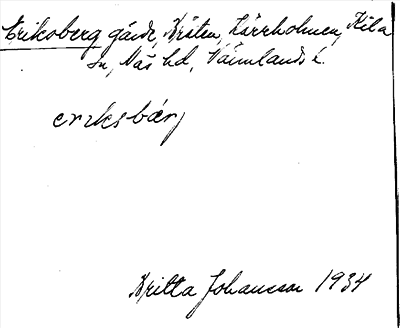 Eriksberg gård, Kroten, Kärrholmen, Kila
sn, Näs hd, Värmlands l.
eriksbærj
Britta Johansson 1934